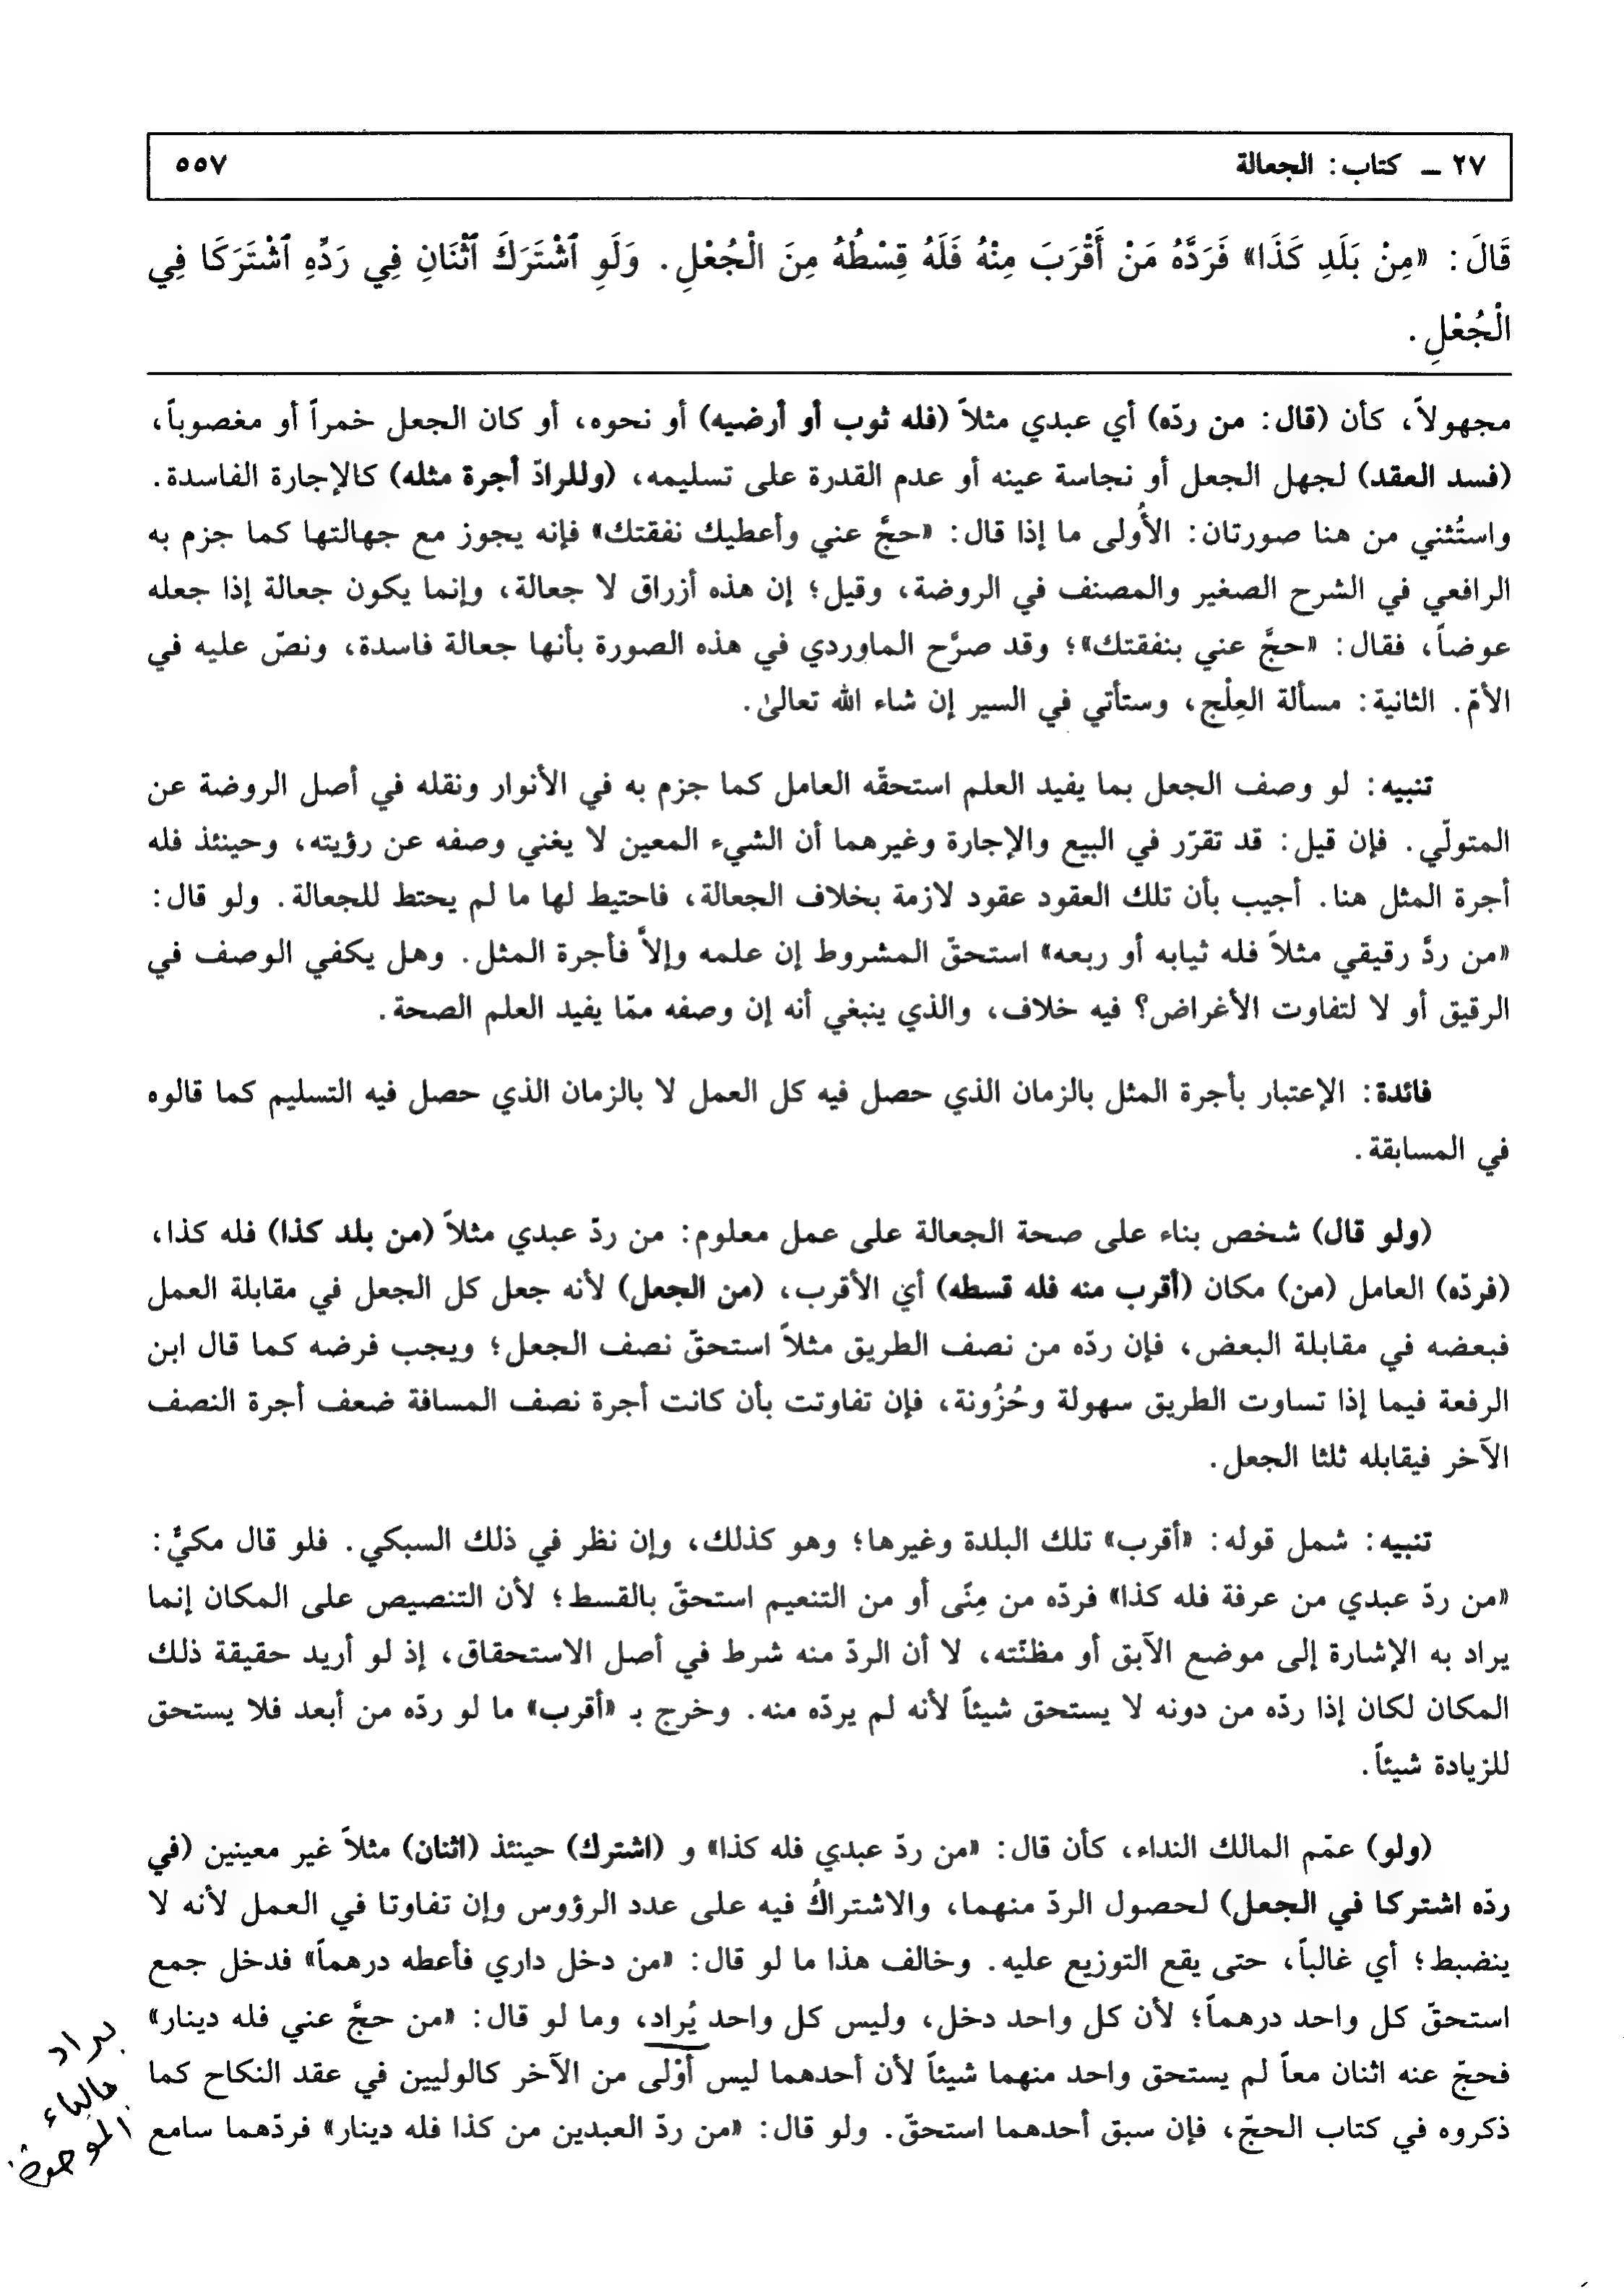 ٢٧ ــ كتاب: الجعالة
٥٥٧
قَالَ: «مِنْ بَلَدِ كَذَا» فَرَدَّهُ مَنْ أَقْرَبَ مِنْهُ فَلَهُ قِسْطُهُ مِنَ الْجُعْلِ. وَلَوِ ٱشْتَرَكَ ٱثْنَانِ فِي رَدِّهِ ٱشْتَرَكَا فِي
الْجُعْلِ.
مجهولاً، كأن (قال: من ردّه) أي عبدي مثلاً (فله ثوب أو أرضيه) أو نحوه، أو كان الجعل خمراً أو مغصوباً،
(فسد العقد) لجهل الجعل أو نجاسة عينه أو عدم القدرة على تسليمه، (وللرادّ أجرة مثله) كالإجارة الفاسدة.
واستُثني من هنا صورتان: الأُولى ما إذا قال: «حجَّ عني وأعطيك نفقتك» فإنه يجوز مع جهالتها كما جزم به
الرافعي في الشرح الصغير والمصنف في الروضة، وقيل؛ إن هذه أزراق لا جعالة، وإنما يكون جعالة إذا جعله
عوضاً، فقال: «حجَّ عني بنفقتك»؛ وقد صرَّح الماوردي في هذه الصورة بأنها جعالة فاسدة، ونصّ عليه في
الأمّ. الثانية: مسألة العِلْج، وستأتي في السير إن شاء الله تعالىٰ.
تنبيه: لو وصف الجعل بما يفيد العلم استحقّه العامل كما جزم به في الأنوار ونقله في أصل الروضة عن
المتولّي. فإن قيل: قد تقرّر في البيع والإجارة وغيرهما أن الشيء المعين لا يغني وصفه عن رؤيته، وحينئذ فله
أجرة المثل هنا. أجيب بأن تلك العقود عقود لازمة بخلاف الجعالة، فاحتيط لها ما لم يحتط للجعالة. ولو قال:
«من ردَّ رقيقي مثلاً فله ثيابه أو ربعه» استحقّ المشروط إن علمه وإلاَّ فأجرة المثل. وهل يكفي الوصف في
الرقيق أو لا لتفاوت الأغراض؟ فيه خلاف، والذي ينبغي أنه إن وصفه ممّا يفيد العلم الصحة.
فائدة: الإعتبار بأجرة المثل بالزمان الذي حصل فيه كل العمل لا بالزمان الذي حصل فيه التسليم كما قالوه
في المسابقة.
(ولو قال) شخص بناء على صحة الجعالة على عمل معلوم: من ردّ عبدي مثلاً (من بلد كذا) فله كذا،
(فردّه) العامل (من) مكان (أقرب منه فله قسطه) أي الأقرب، (من الجعل) لأنه جعل كل الجعل في مقابلة العمل
فبعضه في مقابلة البعض، فإن ردّه من نصف الطريق مثلاً استحقّ نصف الجعل؛ ويجب فرضه كما قال ابن
الرفعة فيما إذا تساوت الطريق سهولة وحُزُونة، فإن تفاوتت بأن كانت أجرة نصف المسافة ضعف أجرة النصف
الآخر فيقابله ثلثا الجعل.
تنبيه: شمل قوله: «أقرب» تلك البلدة وغيرها؛ وهو كذلك، وإن نظر في ذلك السبكي. فلو قال مكيٌّ:
«من ردّ عبدي من عرفة فله كذا» فردّه من مِنًى أو من التنعيم استحقّ بالقسط؛ لأن التنصيص على المكان إنما
يراد به الإشارة إلى موضع الآبق أو مظنّته، لا أن الردّ منه شرط في أصل الاستحقاق، إذ لو أريد حقيقة ذلك
المكان لكان إذا ردّه من دونه لا يستحق شيئاً لأنه لم يردّه منه. وخرج بـ «أقرب» ما لو ردّه من أبعد فلا يستحق
للزيادة شيئاً.
(ولو) عمّم المالك النداء، كأن قال: «من ردّ عبدي فله كذا» و (اشترك) حينئذ (اثنان) مثلاً غير معينين (في
ردّه اشتركا في الجعل) لحصول الردّ منهما، والاشتراكُ فيه على عدد الرؤوس وإن تفاوتا في العمل لأنه لا
ينضبط؛ أي غالباً، حتى يقع التوزيع عليه. وخالف هذا ما لو قال: «من دخل داري فأعطه درهماً» فدخل جمع
استحقّ كل واحد درهماً؛ لأن كل واحد دخل، وليس كل واحد يُراد، وما لو قال: «من حجَّ عني فله دينار»
فحجّ عنه اثنان معاً لم يستحق واحد منهما شيئاً لأن أحدهما ليس أَوْلى من الآخر كالوليين في عقد النكاح كما
ذكروه في كتاب الحجّ، فإن سبق أحدهما استحقّ. ولو قال: «من ردّ العبدين من كذا فله دينار» فردّهما سامع
براد
بالباء
الموحدة